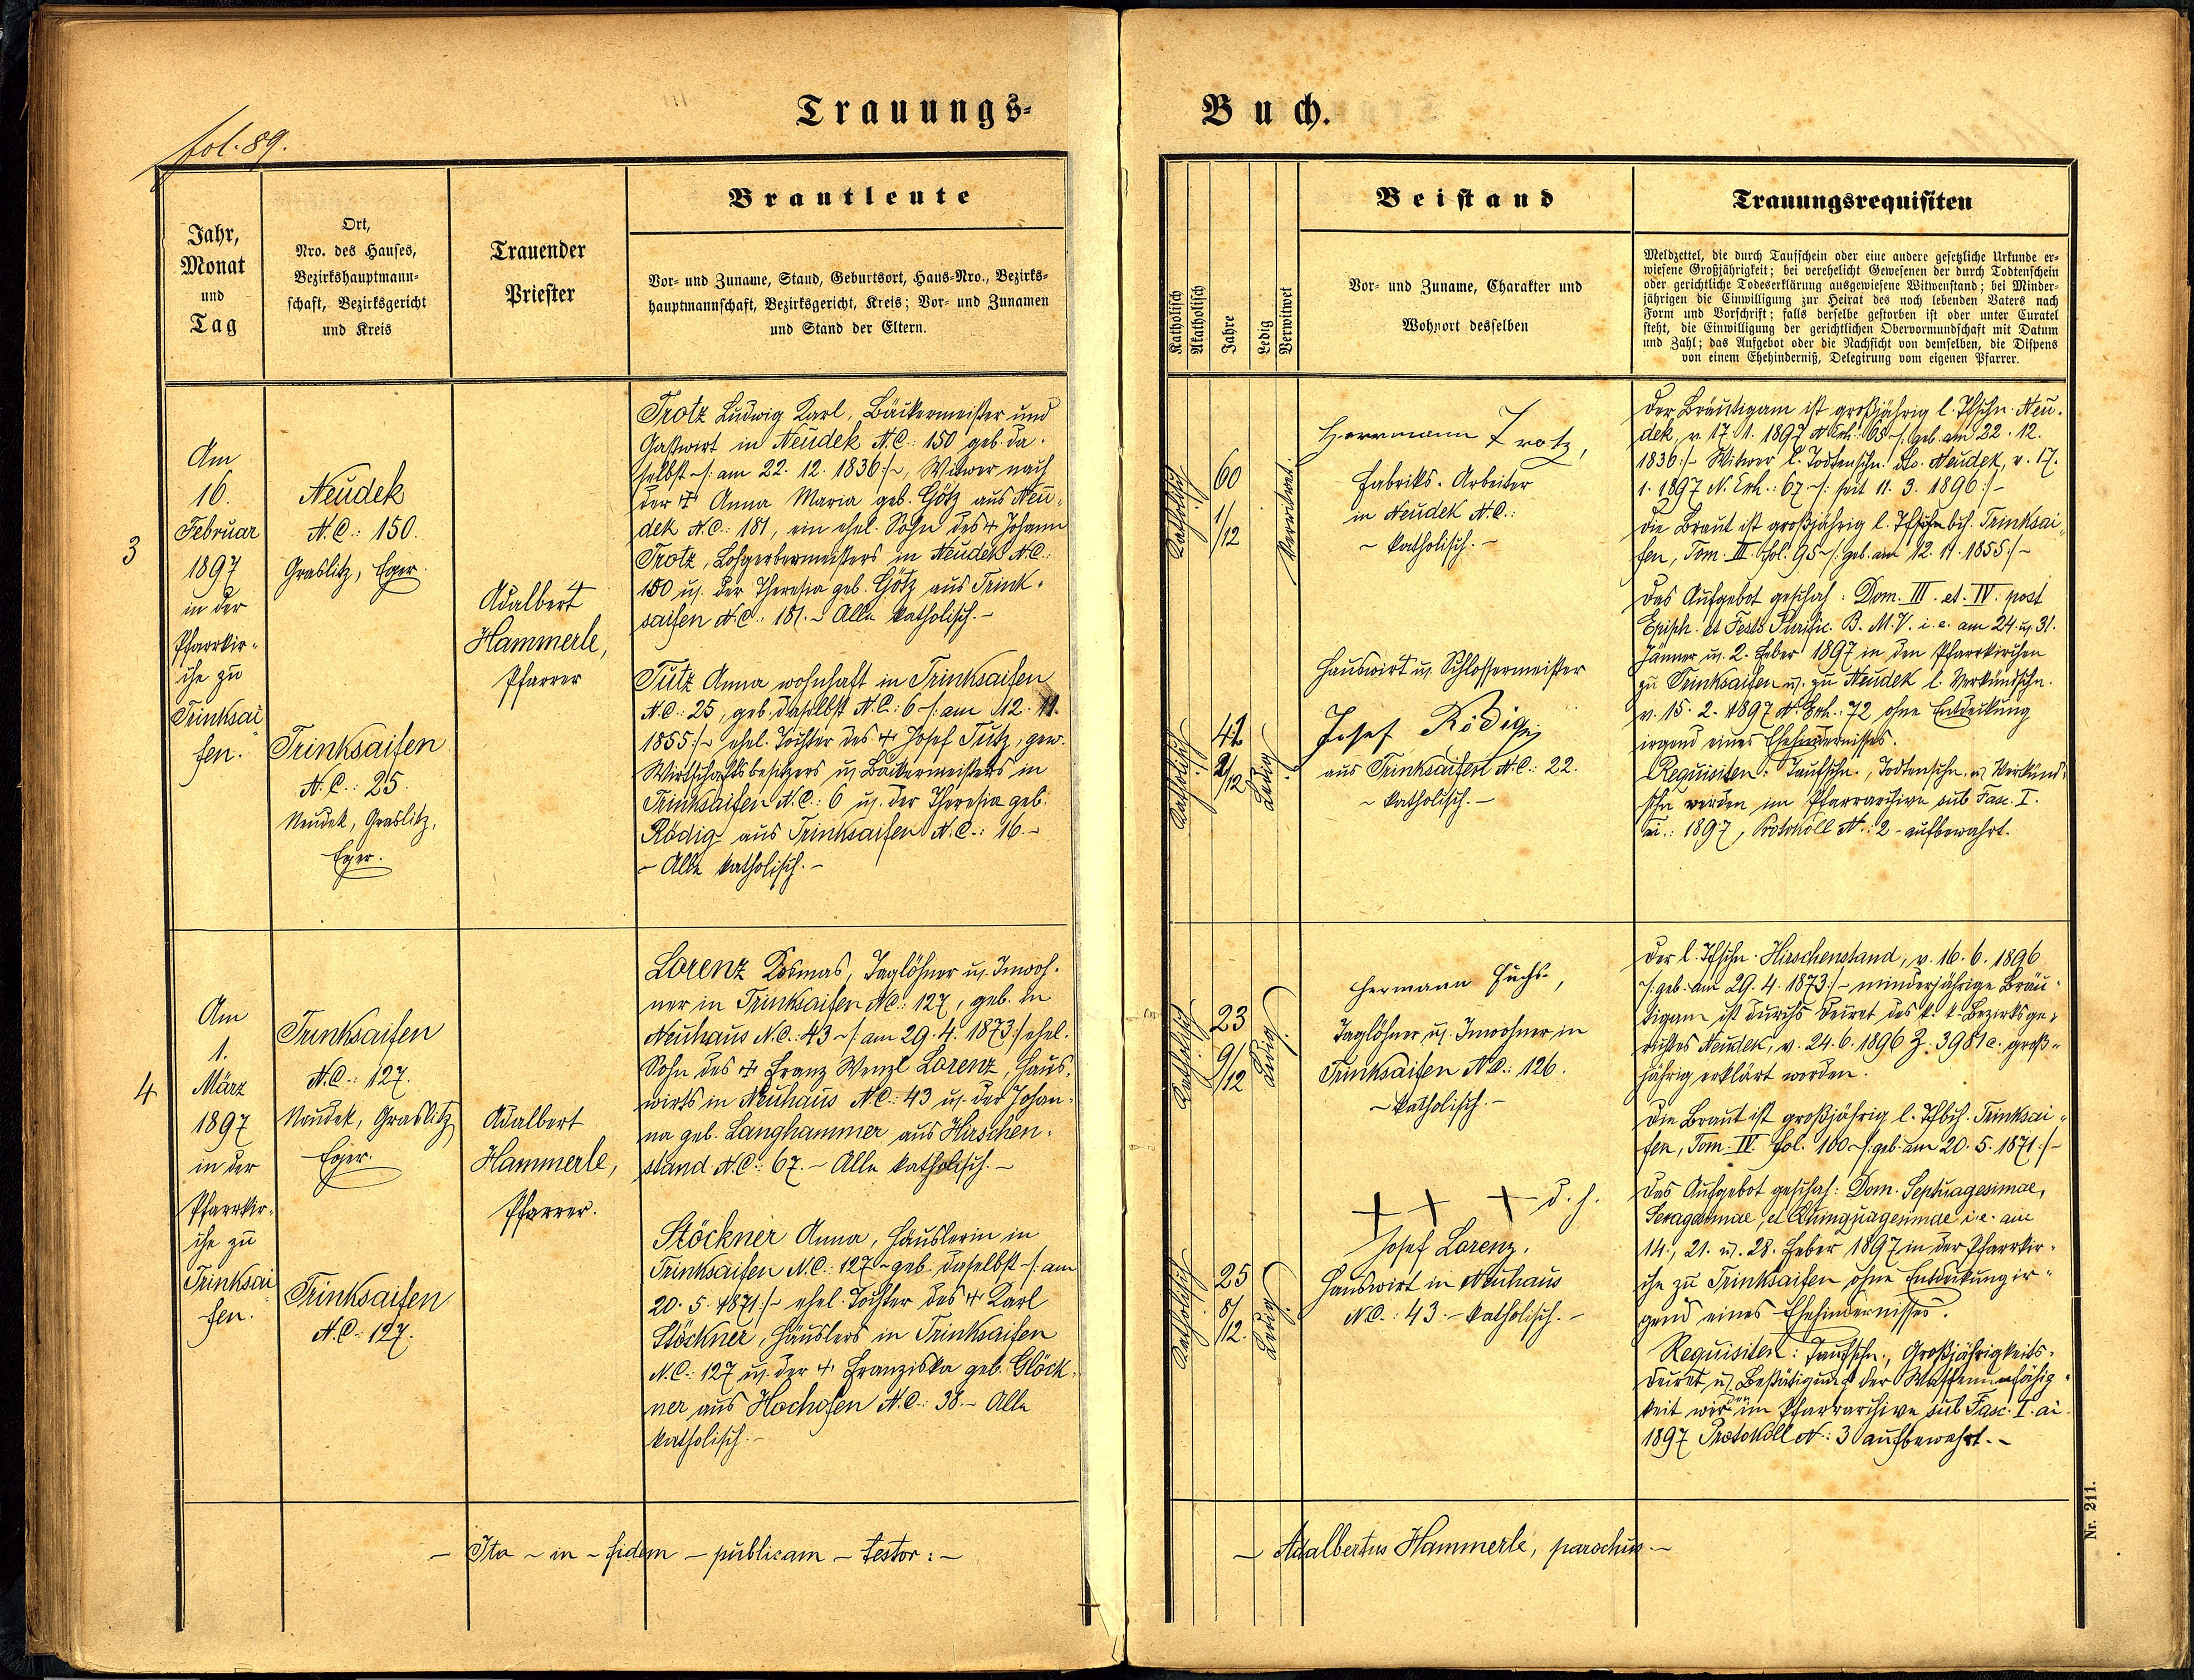 Trauungs-
fol. 89.
Jahr,
Monat
und
Tag
Ort,
Nro. des Hauses,
Bezirkshauptmann-
schaft, Bezirksgericht
und Kreis
Trauender
Priester
Brautleute
Vor- und Zuname, Stand, Geburtsort, Haus-Nro., Bezirks-
hauptmannschaft, Bezirksgericht, Kreis; Vor- und Zunamen
und Stand der Eltern.
3
Am
16.
Februar
1897
in der
Pfarrkir-
che zu
Trinksai
fen.
Neudek
N.C.: 150.
Graslitz, Eger.
Trinksaifen
N.C.: 25.
Neudek, Graslitz,
Eger.
Adalbert
Hammerle,
Pfarrer
Trotz Ludwig Karl, Bäckermeister und
Gastwirt in Neudek N.C.: 150 geb. da-
selbst -/: am 22. 12. 1836:/-, Witwer nach
der † Anna Maria geb. Götz aus Neu-
dek N.C.: 181, ein ehel. Sohn des † Johann
Trotz, Lohgerbermeisters in Neudek N.C.:
150 u. der Theresia geb. Götz aus Trink-
saifen N.C.: 181. - Alle katholisch. -
Tutz Anna wohnhaft in Trinksaifen
N.C.: 25, geb. daselbst N.C.: 6 -/: am 12. 11.
1855:/- ehel. Tochter des † Josef Tutz, gew.
Wirtschaftsbesitzers u. Bäckermeisters in
Trinksaifen N.C.: 6 u. der Theresia geb.
Rödig aus Trinksaifen N.C.: 16. -
- Alle katholisch. -
4
Am
1.
März
1897
in der
Pfarrkir-
che zu
Trinksai
fen.
Trinksaifen
N.C.: 127.
Neudek, Graslitz
Eger.
Trinksaifen
N.C.: 127.
Adalbert
Hammerle,
Pfarrer.
Lorenz Kosmas, Taglöhner u. Inwoh-
ner in Trinksaifen N.C.: 127, geb. in
Neuhaus N.C.: 43 -/: am 29. 4. 1873:/ ehel.
Sohn des † Franz Wenzl Lorenz, Haus-
wirts in Neuhaus N.C.: 43 u. der Johan-
na geb. Langhammer aus Hirschen-
stand N.C.: 67. - Alle katholisch. -
Stöckner Anna, Häuslerin in
Trinksaifen N.C.: 127 - geb. daselbst -/: am
20. 5. 1871:/- ehel. Tochter des † Karl
Stöckner, Häuslers in Trinksaifen
N.C.: 127 u. der † Franziska geb. Glöck-
ner aus Hochofen N.C.: 38. - Alle
katholisch. -
- Ita - in - fidem - publicam - testor: -
Buch.
Katholisch
Akatholisch
Jahre
Ledig
Verwitwet
Beistand
Vor- und Zuname, Charakter und
Wohnort desselben
Trauungsrequisiten
Meldzettel, die durch Taufschein oder eine andere gesetzliche Urkunde er-
wiesene Großjährigkeit; bei verehelicht Gewesenen der durch Todtenschein
oder gerichtliche Todeserklärung ausgewiesene Witwenstand; bei Minder-
jährigen die Einwilligung zur Heirat des noch lebenden Vaters nach
Form und Vorschrift; falls derselbe gestorben ist oder unter Curatel
steht, die Einwilligung der gerichtlichen Obervormundschaft mit Datum
und Zahl; das Aufgebot oder die Nachsicht von demselben, die Dispens
von einem Ehehinderniß, Delegirung vom eigenen Pfarrer.
Katholisch
60
1/12
Verwitwet.
Herrmann Trotz,
Fabriks-Arbeiter
in Neudek N.C.:
- katholisch. -
Katholisch
41
2/12
Ledig
Hauswirt u. Schlossermeister
Josef Rödig
aus Trinksaifen N.C.: 22.
- katholisch. -
Der Bräutigam ist großjährig l. Tfschn. Neu-
dek, v. 17. 1. 1897 N. Exh.: 65 -/: geb. am 22. 12.
1836:/- Witwer l. Todtenschn. dto. Neudek, v. 17.
1. 1897 N. Exh.: 67 -/: seit 11. 3. 1896:/-
Die Braut ist großjährig l. Tfbch. Trinksai
fen, Tom. III. fol. 95 -/: geb. am 12. 11. 1855:/-
Das Aufgebot geschah: Dom. III. et. IV. post
Epiph. et Festo Purific. B. M. V. i. e. am 24. u. 31.
Jänner u. 2. Feber 1897 in den Pfarrkirchen
zu Trinksaifen u. zu Neudek l. Verkündschn.
v. 15. 2. 1897 N. Exh.: 72 ohne Entdeckung
irgend eines Ehehindernisses.
Requisiten: Taufschn., Todtenschn. u. Verkünd-
schn werden im Pfarrarchive sub Fasc. I.
ai.: 1897, Protokoll N.: 2 - aufbewahrt.
Katholisch
23
9/12
Ledig
Hermann Fuchs,
Taglöhner u. Inwohner in
Trinksaifen N.C.: 126.
- katholisch. -
Katholisch
25
8/12.
Ledig
+ + + d. h.
Josef Lorenz.
Hauswirt in Neuhaus
N.C.: 43. - katholisch. -
Der l. Tfschn. Hirschenstand, v. 16. 6. 1896
-/: geb. am 29. 4. 1873:/- minderjährige Bräu-
tigam ist durchs Decret des k. k. Bezirksge-
richtes Neudek, v. 24. 6. 1896 Z. 3981 c. groß-
jährig erklärt worden.
Die Braut ist großjährig l. Tfbch. Trinksai-
fen, Tom. IV. fol. 100 -/: geb. am 20. 5. 1871:/-
Das Aufgebot geschah: Dom. Septuagesimae,
Sexagesimae, et Quinquagesimae i. e. am
14., 21. u. 28. Feber 1897 in der Pfarrkir-
che zu Trinksaifen ohne Entdeckung ir-
gend eines Ehehindernisses.
Requisiten: Taufschn., Großjährigkeits-
decret u. Bestätigung der Waffenunfähig-
keit werden im Pfarrarchive sub Fasc. I. ai
1897 Protokoll N.: 3 aufbewahrt. -
- Adalbertus Hammerle, parochus. -
Nr. 211.